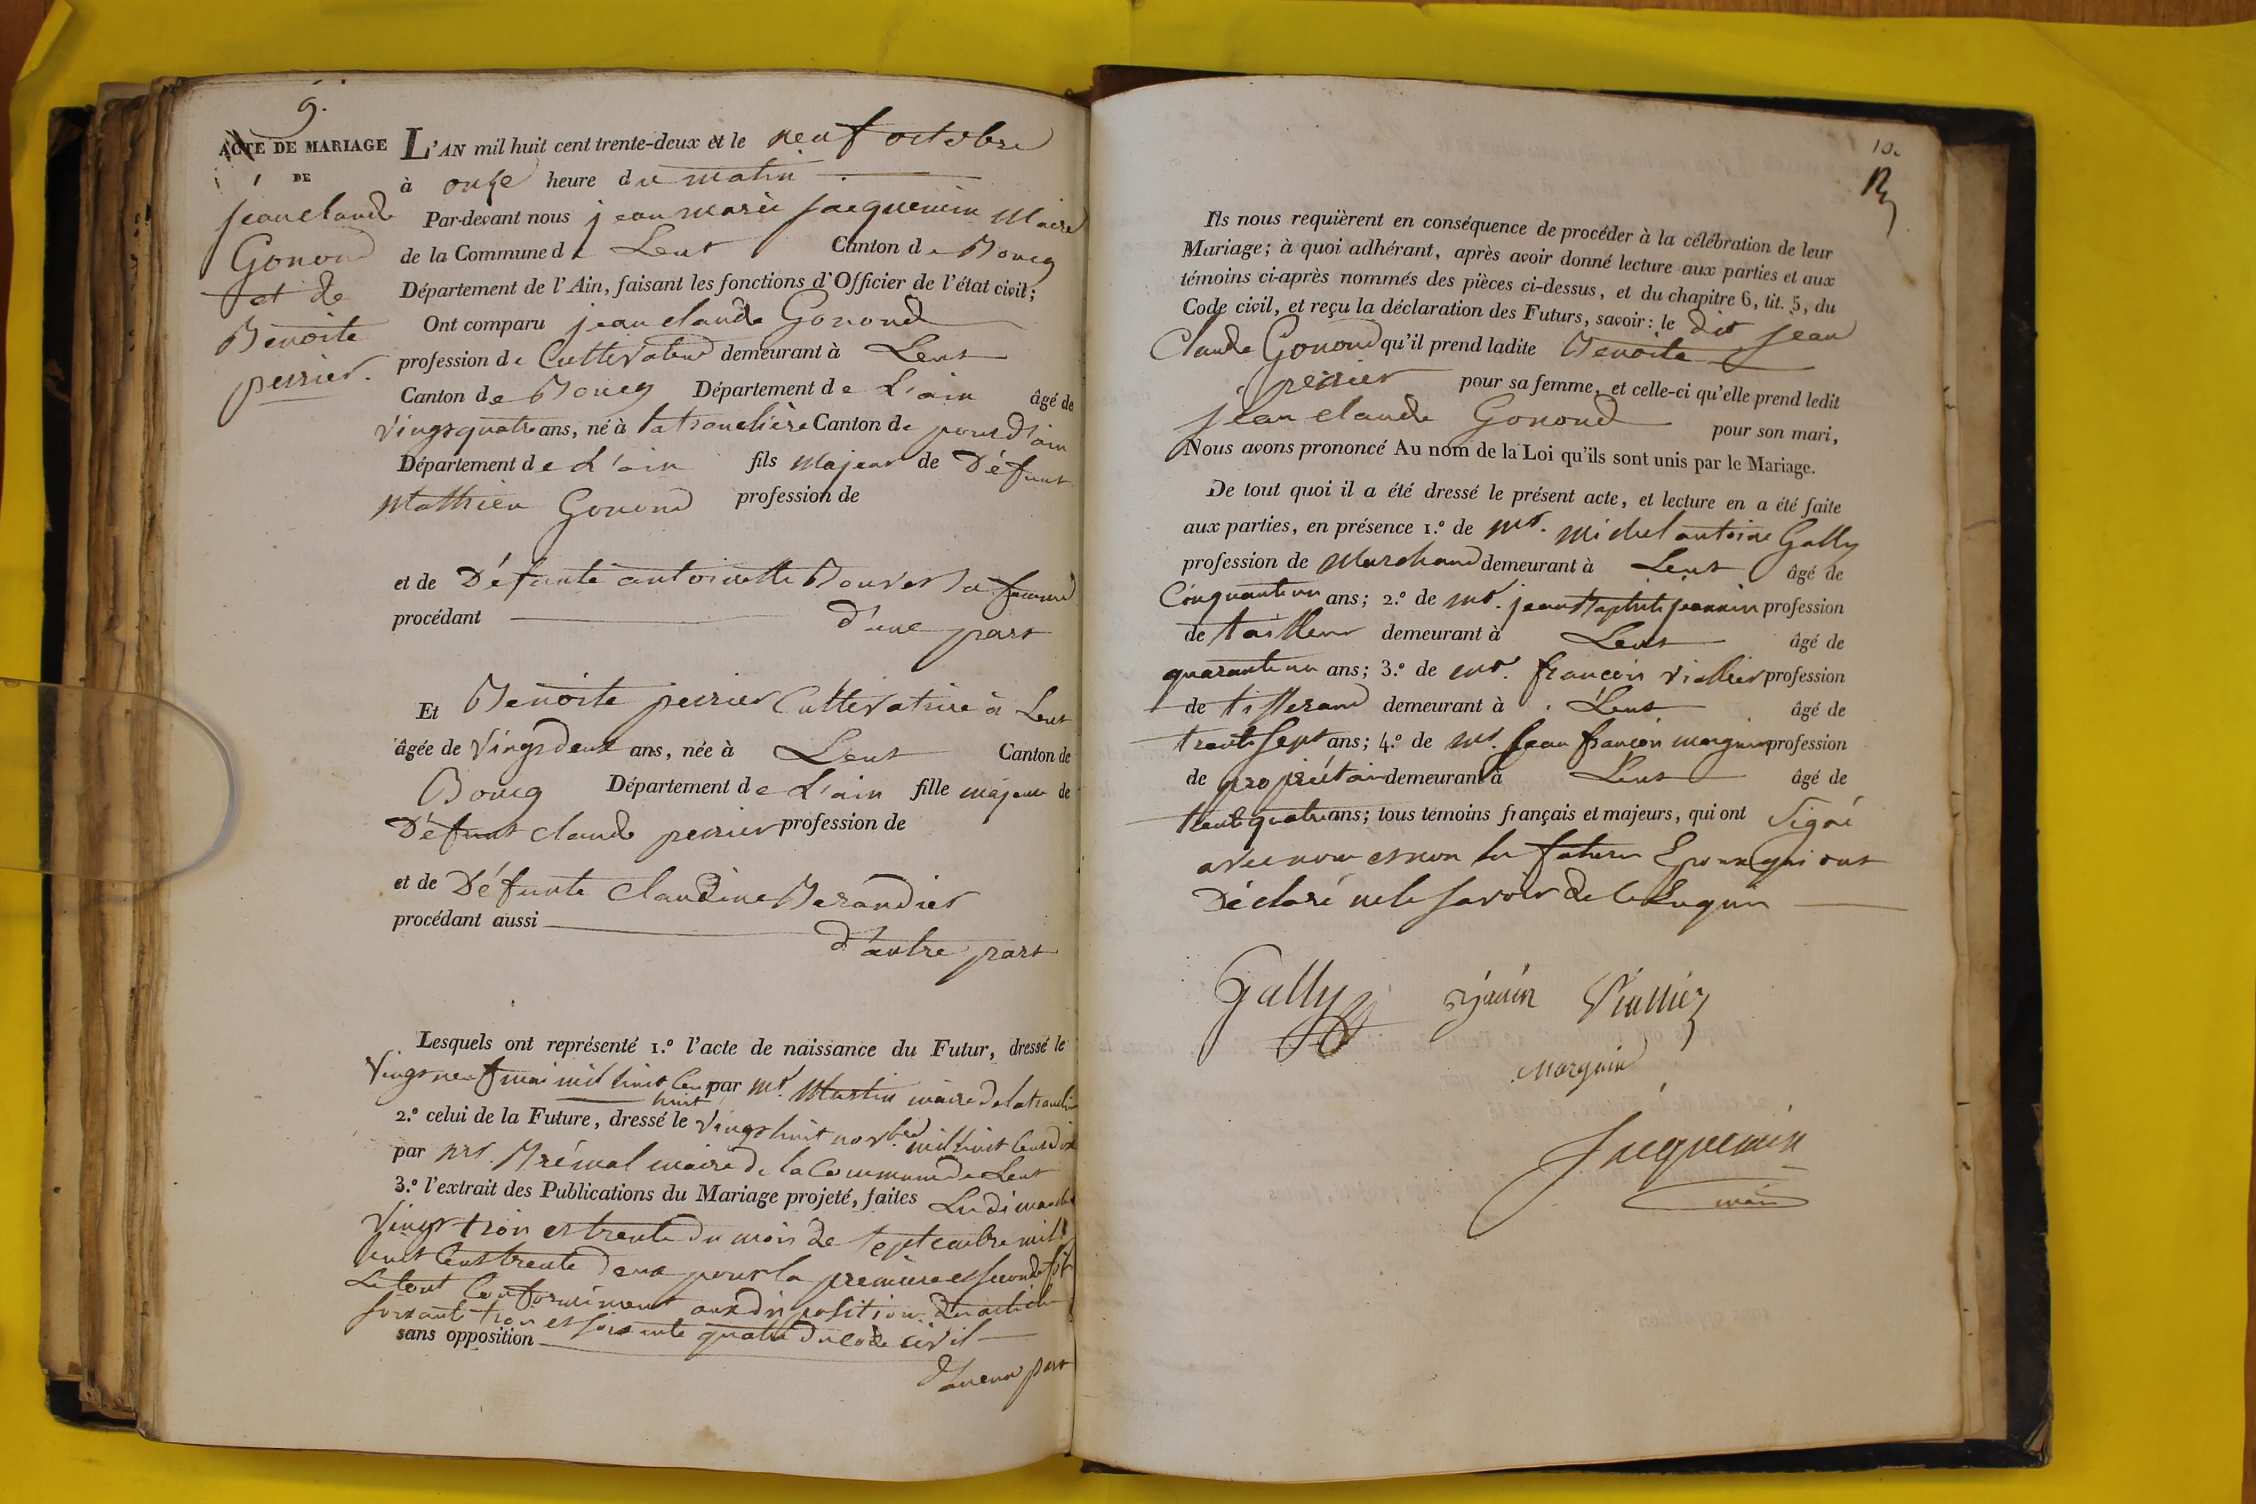 9.
ACTE DE MARIAGE
DE
jean claude
Gonond
et de
Benoite
perrier.
L'AN mil huit cent trente-deux et le neuf octobre
à onze heure du matin
Par-devant nous jean marie jacquemin Maire
de la Commune de Lent Canton de Bourg
Département de l'Ain, faisant les fonctions d'Officier de l'état civil;
Ont comparu jean claude Gonond
profession de Cultivateur demeurant à Lent
Canton de Bourg Département de L'ain âgé de
vingt quatre ans, né à latranclière Canton de pontd'ain
Département de L'ain fils majeur de Défunt
Mathieu Gonond profession de
et de Défunte antoinette Bouvet sa femme
procédant d'une part
Et Benoite perrier Cultivatrice à Lent
âgée de vingt deux ans, née à Lent Canton de
Bourg Département de L'ain fille majeure de
Défunt claude perrier profession de
et de Défunte Claudine Berandier
procédant aussi d'autre part
Lesquels ont représenté 1.º l'acte de naissance du Futur, dressé le
vingt neuf mai mil huit Cent par mr. Martin maire de latranclière
huit
2.º celui de la Future, dressé le vingt huit novbre mil huit Cent dix
par mr. Brémal maire de la Commune de Lent
3.º l'extrait des Publications du Mariage projeté, faites Les dimanches
vingt trois et trente du mois de septembre mil
huit Cent trente deux pour la premiere et seconde fois
Le tout Conformément aux dispositions des articles
soixante trois et soixante quatre du code civil
sans opposition
d'aucune part
10.
Ils nous requièrent en conséquence de procéder à la célébration de leur
Mariage; à quoi adhérant, après avoir donné lecture aux parties et aux
témoins ci-après nommés des pièces ci-dessus, et du chapitre 6, tit. 5, du
Code civil, et reçu la déclaration des Futurs, savoir: le dit jean
Claude Gonond qu'il prend ladite Benoite
perrier pour sa femme, et celle-ci qu'elle prend ledit
jean claude Gonond pour son mari,
Nous avons prononcé Au nom de la Loi qu'ils sont unis par le Mariage.
De tout quoi il a été dressé le présent acte, et lecture en a été faite
aux parties, en présence 1.º de mr. michel antoine Gally
profession de Marchand demeurant à Lent âgé de
Cinquante un ans; 2.º de mr. jean Baptiste jeannin profession
de tailleur demeurant à Lent âgé de
quarante un ans; 3.º de mr. francois viallier profession
de tisserand demeurant à Lent âgé de
trente sept ans; 4.º de mr. jean francois morguin profession
de propriétaire demeurant à Lent âgé de
trente quatre ans; tous témoins français et majeurs, qui ont signé
avec nous et non les futurs Epoux qui ont
Déclaré ne le savoir de ce Enquis
Gally Viallier
Morguin
Jacquemin
maire